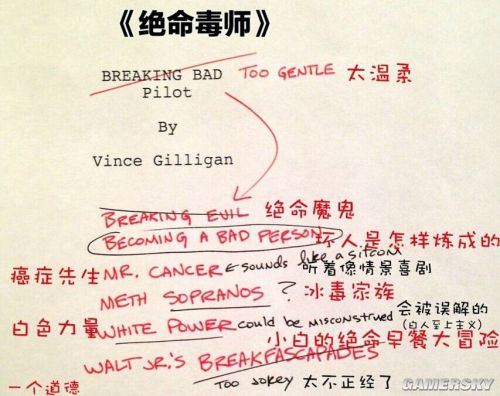 《绝命毒师》
BREAKING BAD TOO GENTLE 太温柔
Pilot
By
Vince Gilligan
BREAKING EVIL 绝命魔鬼
BECOMING A BAD PERSON 坏人是怎样炼成的
癌症先生 MR. CANCER ← sounds like a sitcom 听着像情景喜剧
METH SOPRANOS ? 冰毒家族
白色力量 WHITE POWER could be misconstrued 会被误解的
(白人至上主义)
小白的绝命早餐大冒险
WALT JR.'S BREAKFASCAPADES
一个道德 TOO JOKEY 太不正经了
GAMERSKY